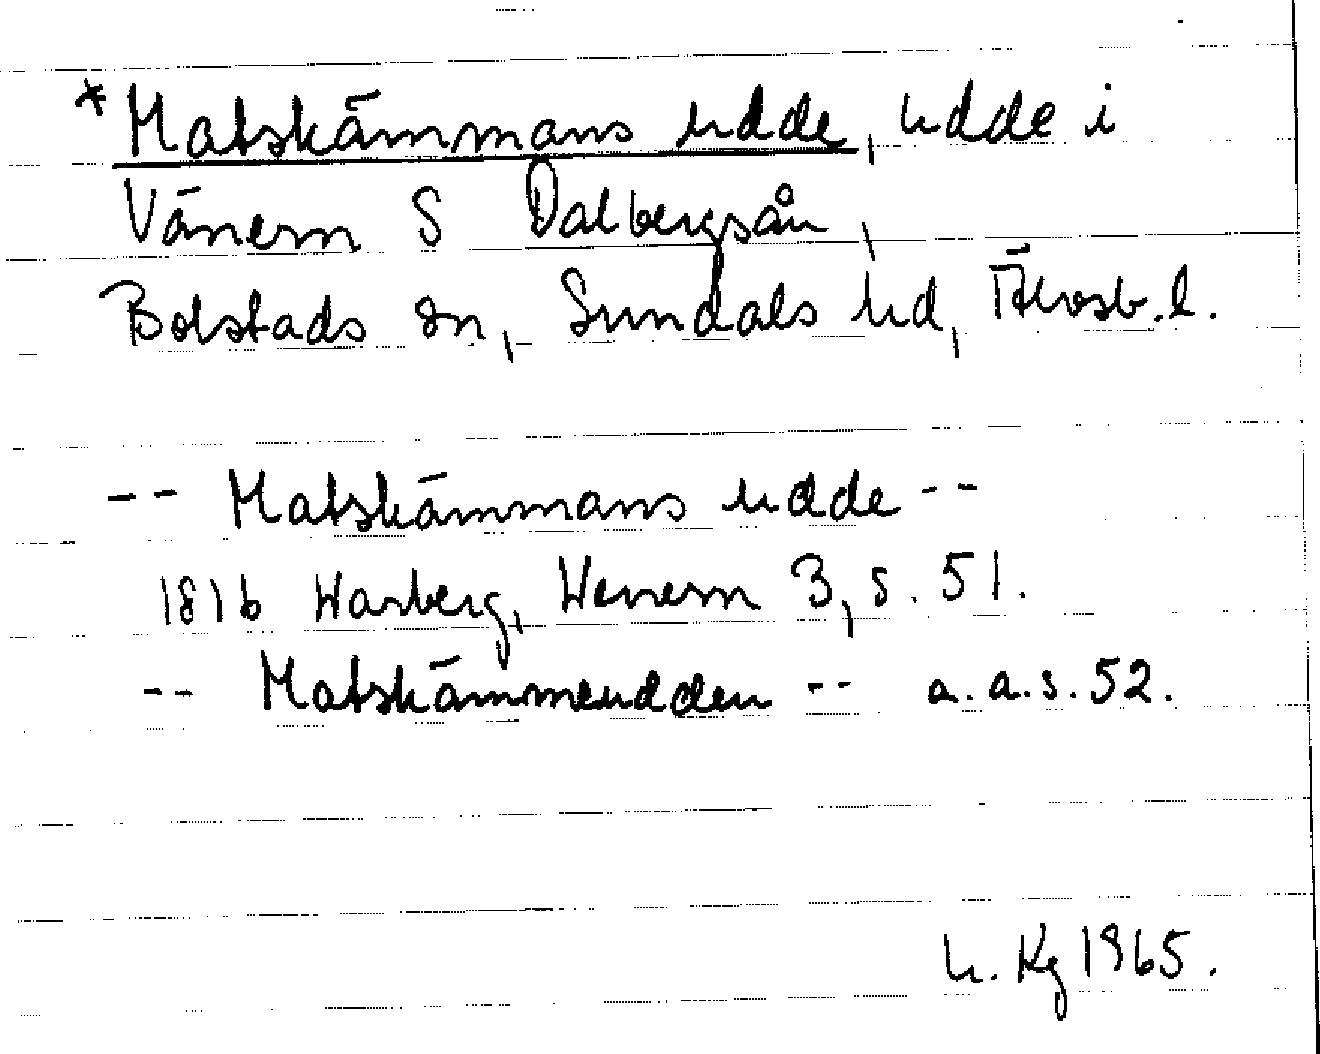 * Matskämmans udde, udde i
Vänern S Dalbergsån,
Bolstads sn, Sundals hd, Älvsb. l.
-- Matskämmans udde --
1816 Warberg, Wenern 3, s. 51.
-- Matskämmeudden -- a.a.s. 52.
U. Kg 1965.